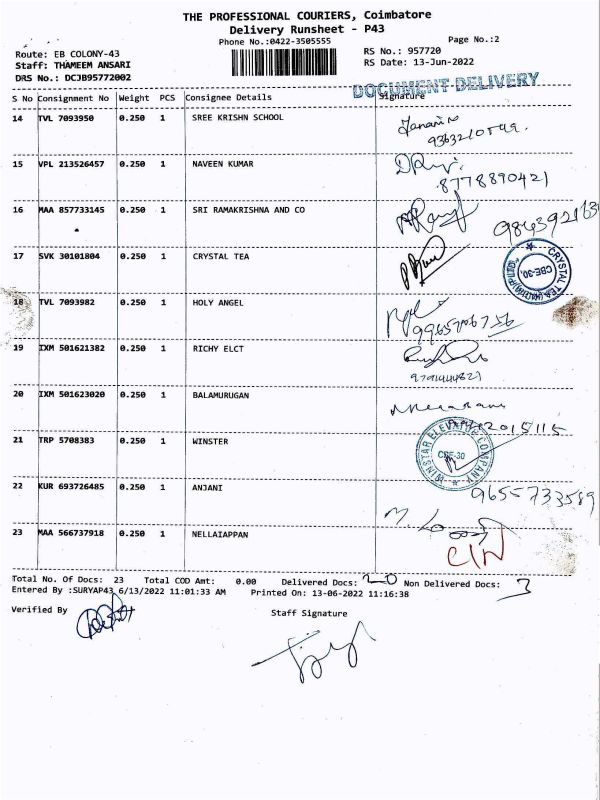 THE PROFESSIONAL COURIERS, Coimbatore
Delivery Runsheet - P43
Phone No.:0422-3505555
Page No.:2
Route: EB COLONY-43
RS No.: 957720
Staff: THAMEEM ANSARI
RS Date: 13-Jun-2022
DRS No.: DCJB95772002
DOCUMENT DELIVERY
S No Consignment No Weight PCS Consignee Details Signature
14 TVL 7093950 0.250 1 SREE KRISHN SCHOOL
15 VPL 213526457 0.250 1 NAVEEN KUMAR
8778890421
16 MAA 857733145 0.250 1 SRI RAMAKRISHNA AND CO
17 SVK 30101804 0.250 1 CRYSTAL TEA
CBE-30.
18 TVL 7093982 0.250 1 HOLY ANGEL
19 IXM 501621382 0.250 1 RICHY ELCT
20 IXM 501623020 0.250 1 BALAMURUGAN
21 TRP 5708383 0.250 1 WINSTER
WINSTAR ELEVATRIC COMPANY
CBE-30
22 KUR 693726485 0.250 1 ANJANI
9655733589
23 MAA 566737918 0.250 1 NELLAIAPPAN
Total No. Of Docs: 23 Total COD Amt: 0.00 Delivered Docs: 20 Non Delivered Docs: 3
Entered By :SURYAP43 6/13/2022 11:01:33 AM Printed On: 13-06-2022 11:16:38
Verified By
Staff Signature